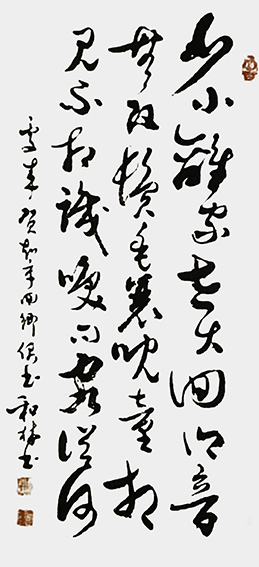 少小離家老大回鄉音
無改鬢毛衰兒童相
見不相識咲問客從何
處來 賀知章回鄉偶書 和林書